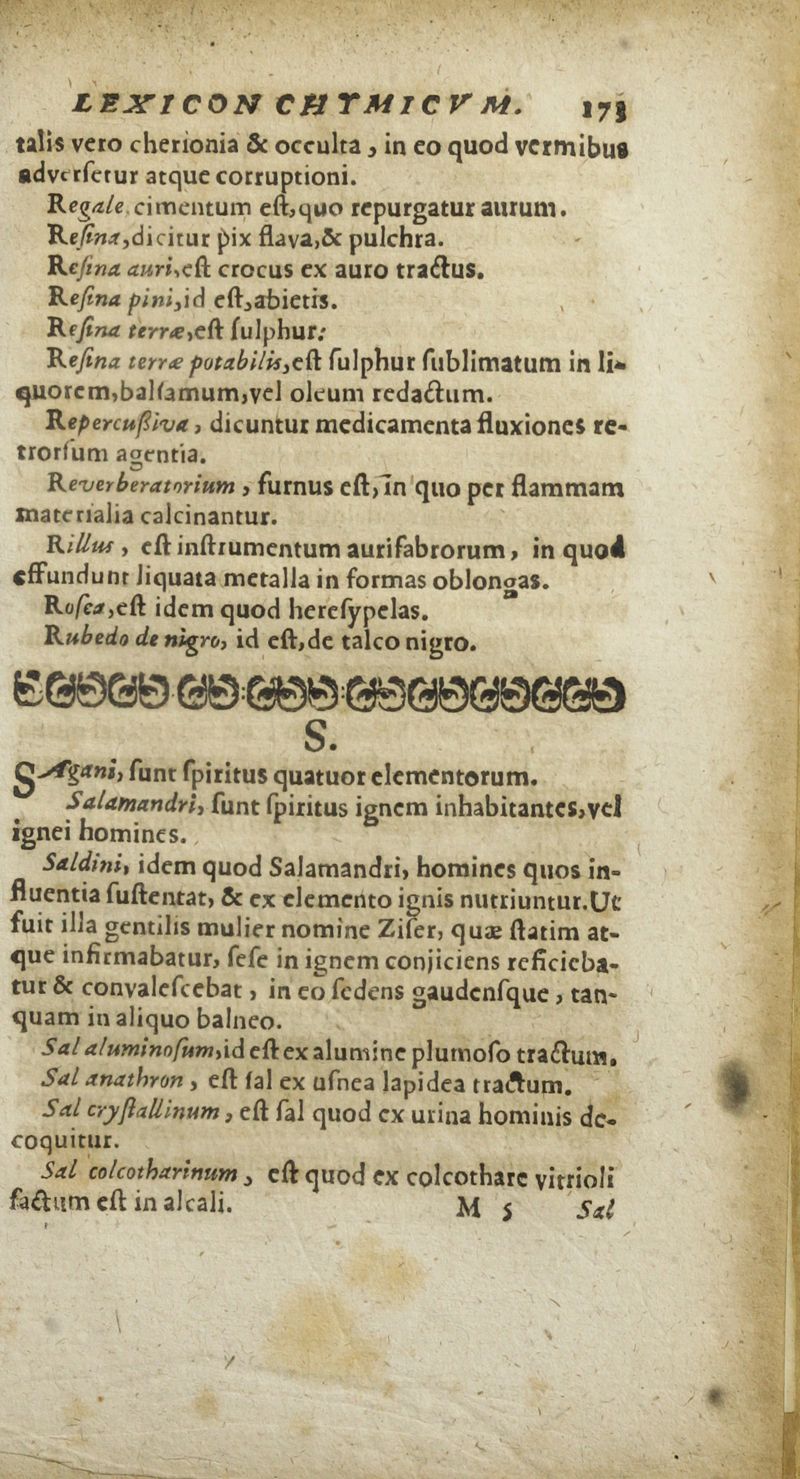 LEXICON CHYMICVM. 173
talis vero cherionia & occulta, in eo quod vermibus
adverſetur atque corruptioni.
Regale cimentum eſt, quo repurgatur aurum.
Reſina, dicitur pix flava, & pulchra.
Reſina auri, eſt crocus ex auro tractus.
Reſina pini, id eſt, abietis.
Reſina terræ, eſt ſulphur:
Reſina terræ potabilis, eſt ſulphur ſublimatum in li-
quorem, balſamum, vel oleum redactum.
Repercuſſiva, dicuntur medicamenta fluxiones re-
trorſum agentia.
Reverberatorium, furnus eſt, in quo per flammam
materialia calcinantur.
Rillus, eſt inſtrumentum aurifabrorum, in quod
effundunt liquata metalla in formas oblongas.
Roſea, eſt idem quod hereſypelas.
Rubedo de nigro, id eſt, de talco nigro.
S.
SAgani, ſunt ſpiritus quatuor elementorum.
Salamandri, ſunt ſpiritus ignem inhabitantes, vel
ignei homines.
Saldini, idem quod Salamandri, homines quos in-
fluentia ſuſtentat, & ex elemento ignis nutriuntur. Ut
fuit illa gentilis mulier nomine Ziſer, quæ ſtatim at-
que infirmabatur, ſeſe in ignem conjiciens reficieba-
tur & convaleſcebat, in eo ſedens gaudenſque, tan-
quam in aliquo balneo.
Sal aluminoſum, id eſt ex alumine plumoſo tractum.
Sal anathron, eſt ſal ex uſnea lapidea tractum.
Sal cryſtallinum, eſt ſal quod ex urina hominis de-
coquitur.
Sal colcotharinum, eſt quod ex colcothare vitrioli
factum eſt in alcali. M 5 Sal